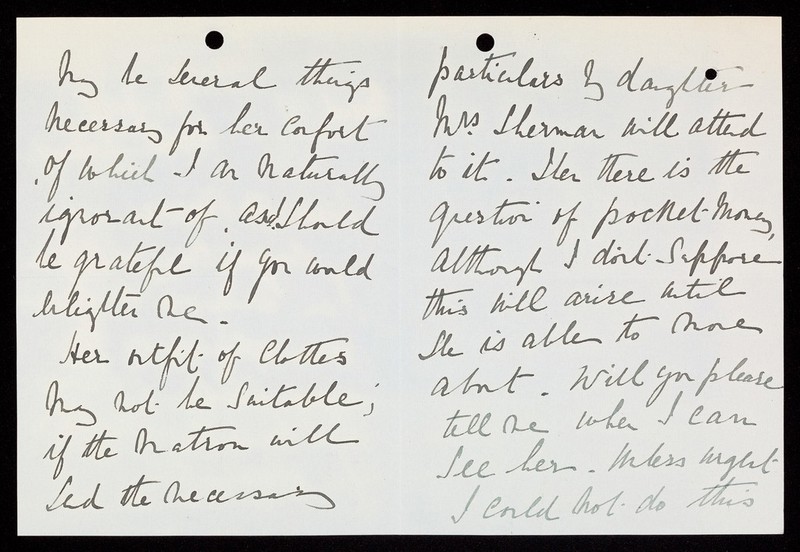 may be several things
necessary for her comfort
of which I am naturally
ignorant of, and should
be grateful if you would
enlighten me.
Her outfit of clothes
may not be suitable;
if the Matron will
send the necessary
particulars my daughter
Mrs Sherman will attend
to it. Then there is the
question of pocket-money,
although I don't suppose
this will arise until
she is able to move
about. Will you please
tell me when I can
see her. Unless urgent
I could not do this